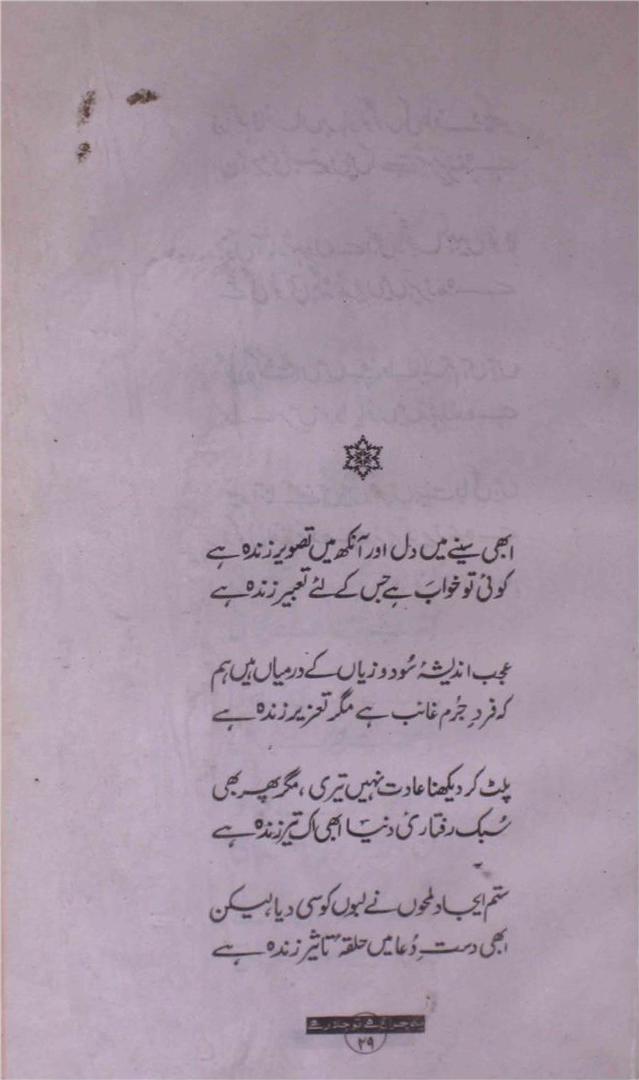 ابھی سینے میں دل اور آنکھ میں تصویر زندہ ہے
کوئی تو خواب ہے جس کے لئے تعبیر زندہ ہے
عجب اندیشۂ سُود و زیاں کے درمیاں ہیں ہم
کہ فردِ جُرم غائب ہے مگر تعزیر زندہ ہے
پلٹ کر دیکھنا عادت نہیں تیری، مگر پھر بھی
سُبک رفتاریٔ دنیا ابھی اک تیر زندہ ہے
ستم ایجاد لمحوں نے لبوں کو سی دیا، لیکن
ابھی دستِ دُعا میں حلقۂ تاثیر زندہ ہے
چراغ ہے تو جلا رہے
۲۹